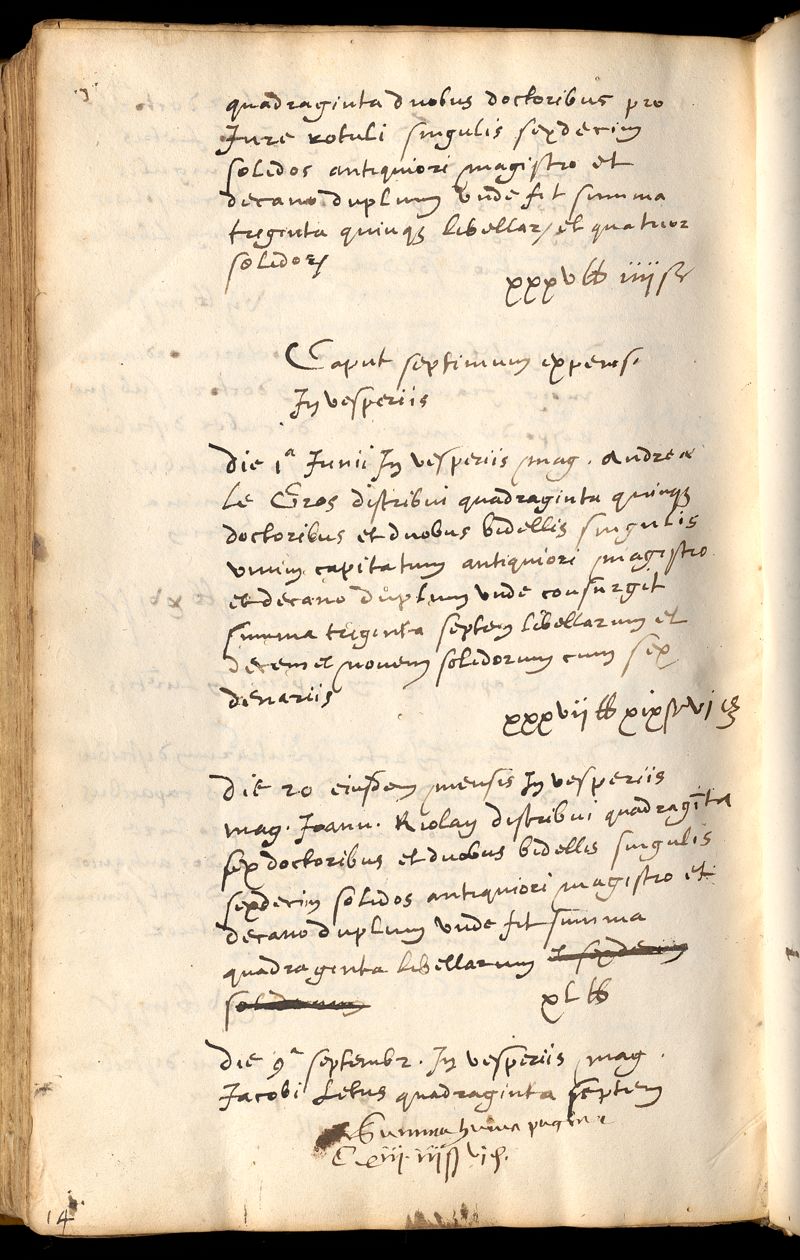 quadraginta duobus doctoribus pro
Jure rotuli singulis sexdecim
solidos antiquiori magistro et
decano duplum Unde fit summa
triginta quinqꝫ libellar, et quatuor
solidorꝫ
xxxv lb iiij s
Caput septimum expens.
In vesperiis
Die 1ª Junii In vesperiis mag. Andreæ
Le Gros distribui quadraginta quinqꝫ
doctoribus et duobus bidellis singulis
unum capitatum antiquiori magistro
et decano duplum unde consurgit
summa triginta septem libellarum et
decem et novem solidorum cum sex
denariis
xxxvii lb xix s vi d
Die 20 eiusdem mensis In vesperiis
mag. Joann. Riolan distribui quadraginta
sex doctoribus et duobus bidellis singulis
sexdecim solidos antiquiori magistro et
decano duplum Unde fit summa
quadraginta libellarum et sexdecim
solidorum xL lb
Die 9ª septembr. In vesperiis mag.
Jacobi Letus quadraginta septem
Summa huius paginæ
Cxiii. iiij s vi d.
14